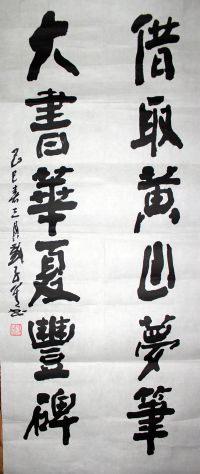 借取黄山夢筆
大書華夏豐碑
己巳春三月戴